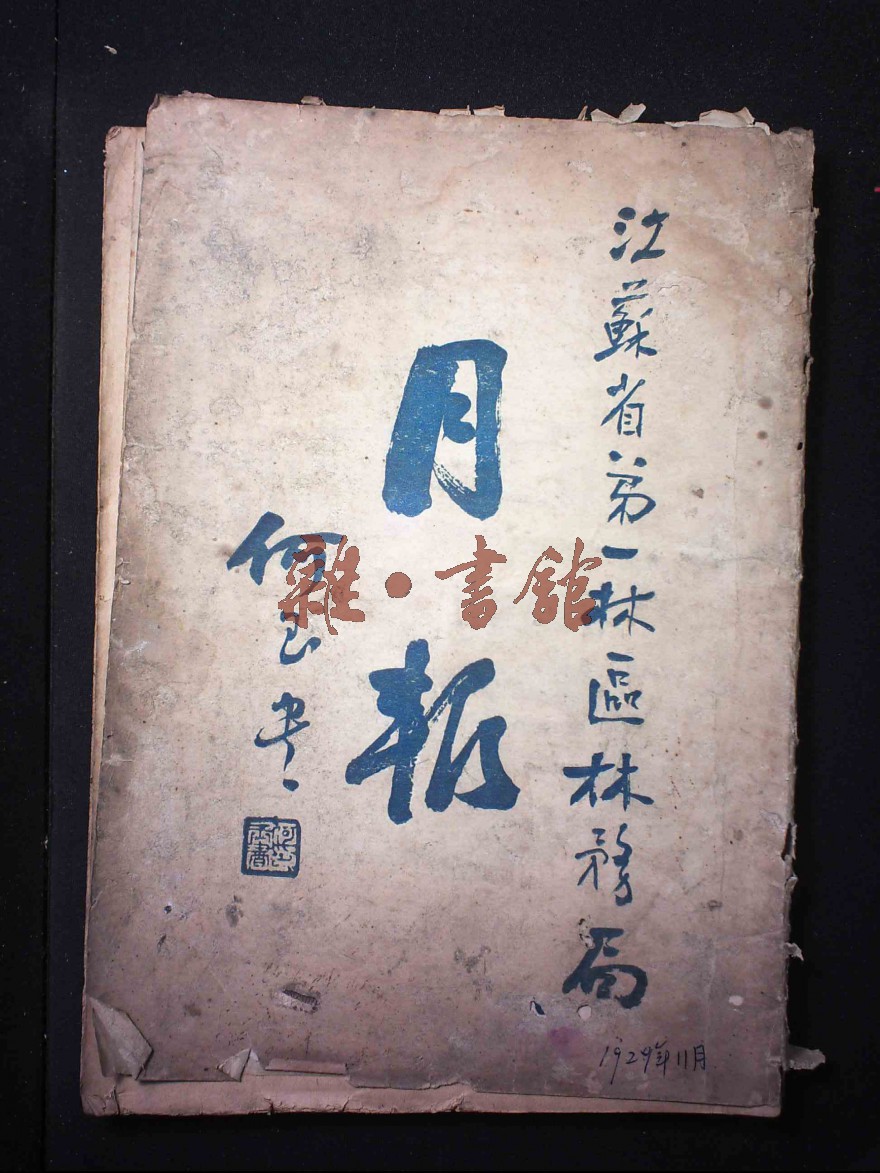 江蘇省第一林區林務局
月報
何玉書
何玉書
1929年11月
雜·書館